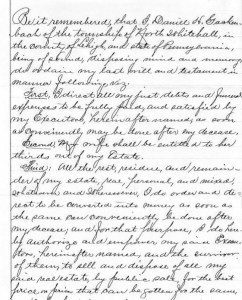 Be it remembered, that I, Daniel H.
bach of the township of North Whitehall, in
the county of Lehigh and state of Pennsylvania,
being of sound, disposing mind and memory,
do ordain my last will and testament in
manner following, viz:
First, I direct all my just debts and funeral
expenses to be fully paid, and satisfied by
my Executors, hereinafter named, as soon
as conveniently may be done after my decease.
Second: My wife shall be entitled to her
thirds out of my Estate.
Third: All the rest, residue, and remain-
der of my estate, real, personal, and mixed,
whatsoever and wheresoever, I do order and di-
rect to be converted into money as soon as
the same can conveniently be done after
my decease; and for that purpose, I do here-
by authorize and empower my said Execu-
tors, hereinafter named, and the survivor
of them, to sell and dispose of all my
said real estate by public sale, for the best
price or prices that can be gotten for the same,